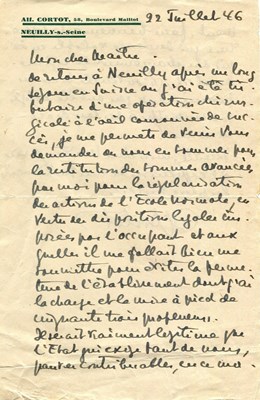 Alf. CORTOT, 58, Boulevard Maillot
NEUILLY-s.-Seine
22 Juillet 46
Mon cher Maître.
de retour à Neuilly après un long
séjour en Suisse où j'ai été tri-
butaire d'une opération chirur-
gicale à l'œil couronnée de suc-
cès, je me permets de venir vous
demander où nous en sommes pour
la restitution des sommes avancées
par moi pour la régularisation
des actions de l'Ecole Normale, en
vertu des dispositions légales im-
posées par l'occupant et aux
quelles il me fallait bien me
soumettre pour éviter la ferme-
ture de l'établissement dont j'ai
la charge et la mise à pied de
cinquante trois professeurs.
Il serait vraiment légitime que
l'Etat qui exige tant de nous,
pauvres contribuables, en ce mo-